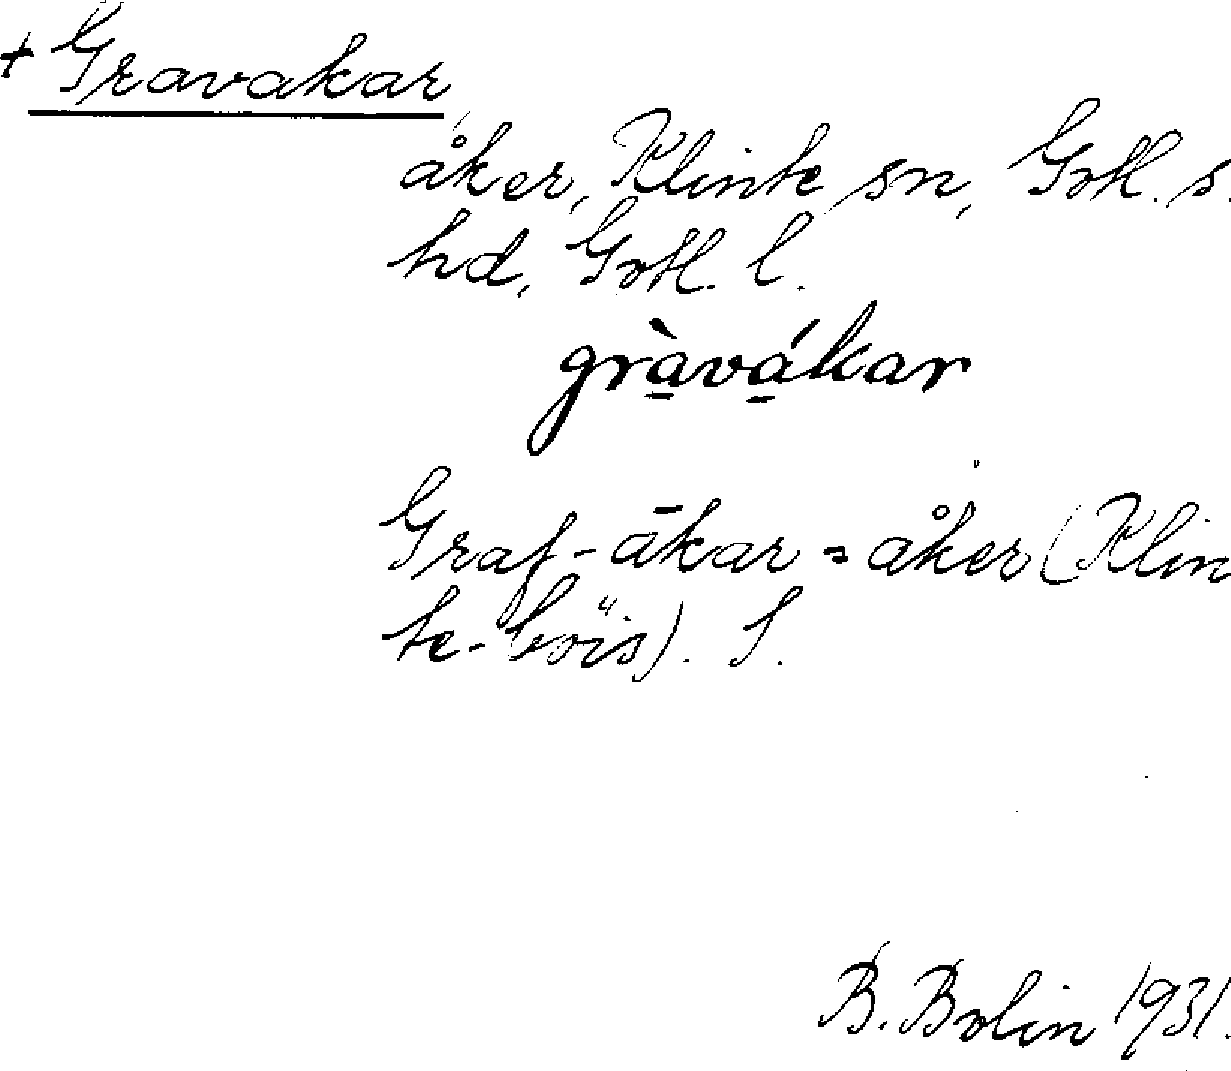 + Gravakar
åker, Klinte sn, Gotl. s.
hd, Gotl. l.
gràvákar
Graf-ākar = åker (Klin
te-boïs). S.
B. Bolin 1931.